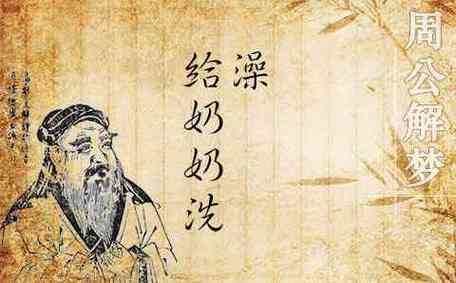 周公解梦
给奶奶洗
澡